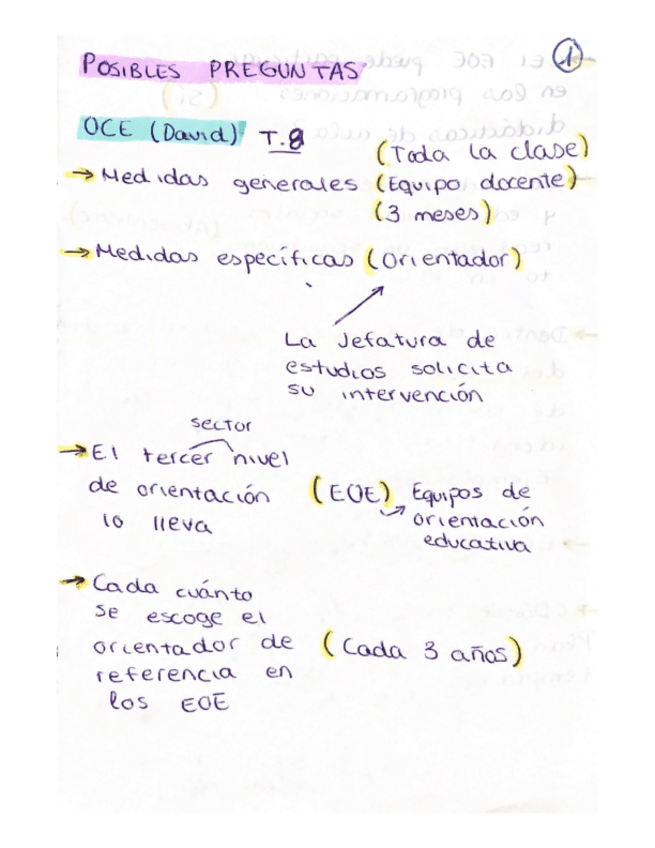 1
POSIBLES PREGUNTAS
OCE (David) T.8
(Toda la clase)
→ Medidas generales (Equipo docente)
(3 meses)
→ Medidas específicas (Orientador)
La Jefatura de
estudios solicita
su intervención
sector
→ El tercer nivel
de orientación
lo lleva
(EOE) Equipos de
orientación
educativa
→ Cada cuánto
se escoge el
orientador de
referencia en
los EOE
(Cada 3 años)